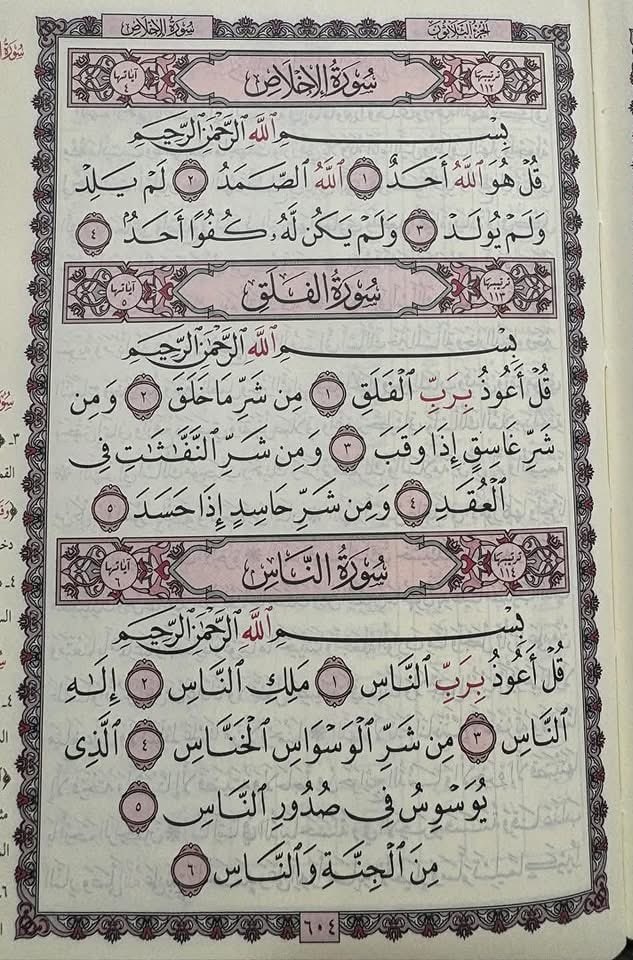 الجزء الثلاثون
سورة الإخلاص
ترتيبها ١١٢ سُورَةُ الإِخْلَاصِ آياتها ٤
بِسْمِ ٱللَّهِ ٱلرَّحْمَٰنِ ٱلرَّحِيمِ
قُلْ هُوَ ٱللَّهُ أَحَدٌ ١ ٱللَّهُ ٱلصَّمَدُ ٢ لَمْ يَلِدْ
وَلَمْ يُولَدْ ٣ وَلَمْ يَكُن لَّهُۥ كُفُوًا أَحَدٌۢ ٤
ترتيبها ١١٣ سُورَةُ الفَلَقِ آياتها ٥
بِسْمِ ٱللَّهِ ٱلرَّحْمَٰنِ ٱلرَّحِيمِ
قُلْ أَعُوذُ بِرَبِّ ٱلْفَلَقِ ١ مِن شَرِّ مَا خَلَقَ ٢ وَمِن
شَرِّ غَاسِقٍ إِذَا وَقَبَ ٣ وَمِن شَرِّ ٱلنَّفَّٰثَٰتِ فِى
ٱلْعُقَدِ ٤ وَمِن شَرِّ حَاسِدٍ إِذَا حَسَدَ ٥
ترتيبها ١١٤ سُورَةُ النَّاسِ آياتها ٦
بِسْمِ ٱللَّهِ ٱلرَّحْمَٰنِ ٱلرَّحِيمِ
قُلْ أَعُوذُ بِرَبِّ ٱلنَّاسِ ١ مَلِكِ ٱلنَّاسِ ٢ إِلَٰهِ
ٱلنَّاسِ ٣ مِن شَرِّ ٱلْوَسْوَاسِ ٱلْخَنَّاسِ ٤ ٱلَّذِى
يُوَسْوِسُ فِى صُدُورِ ٱلنَّاسِ ٥
مِنَ ٱلْجِنَّةِ وَٱلنَّاسِ ٦
٦٠٤